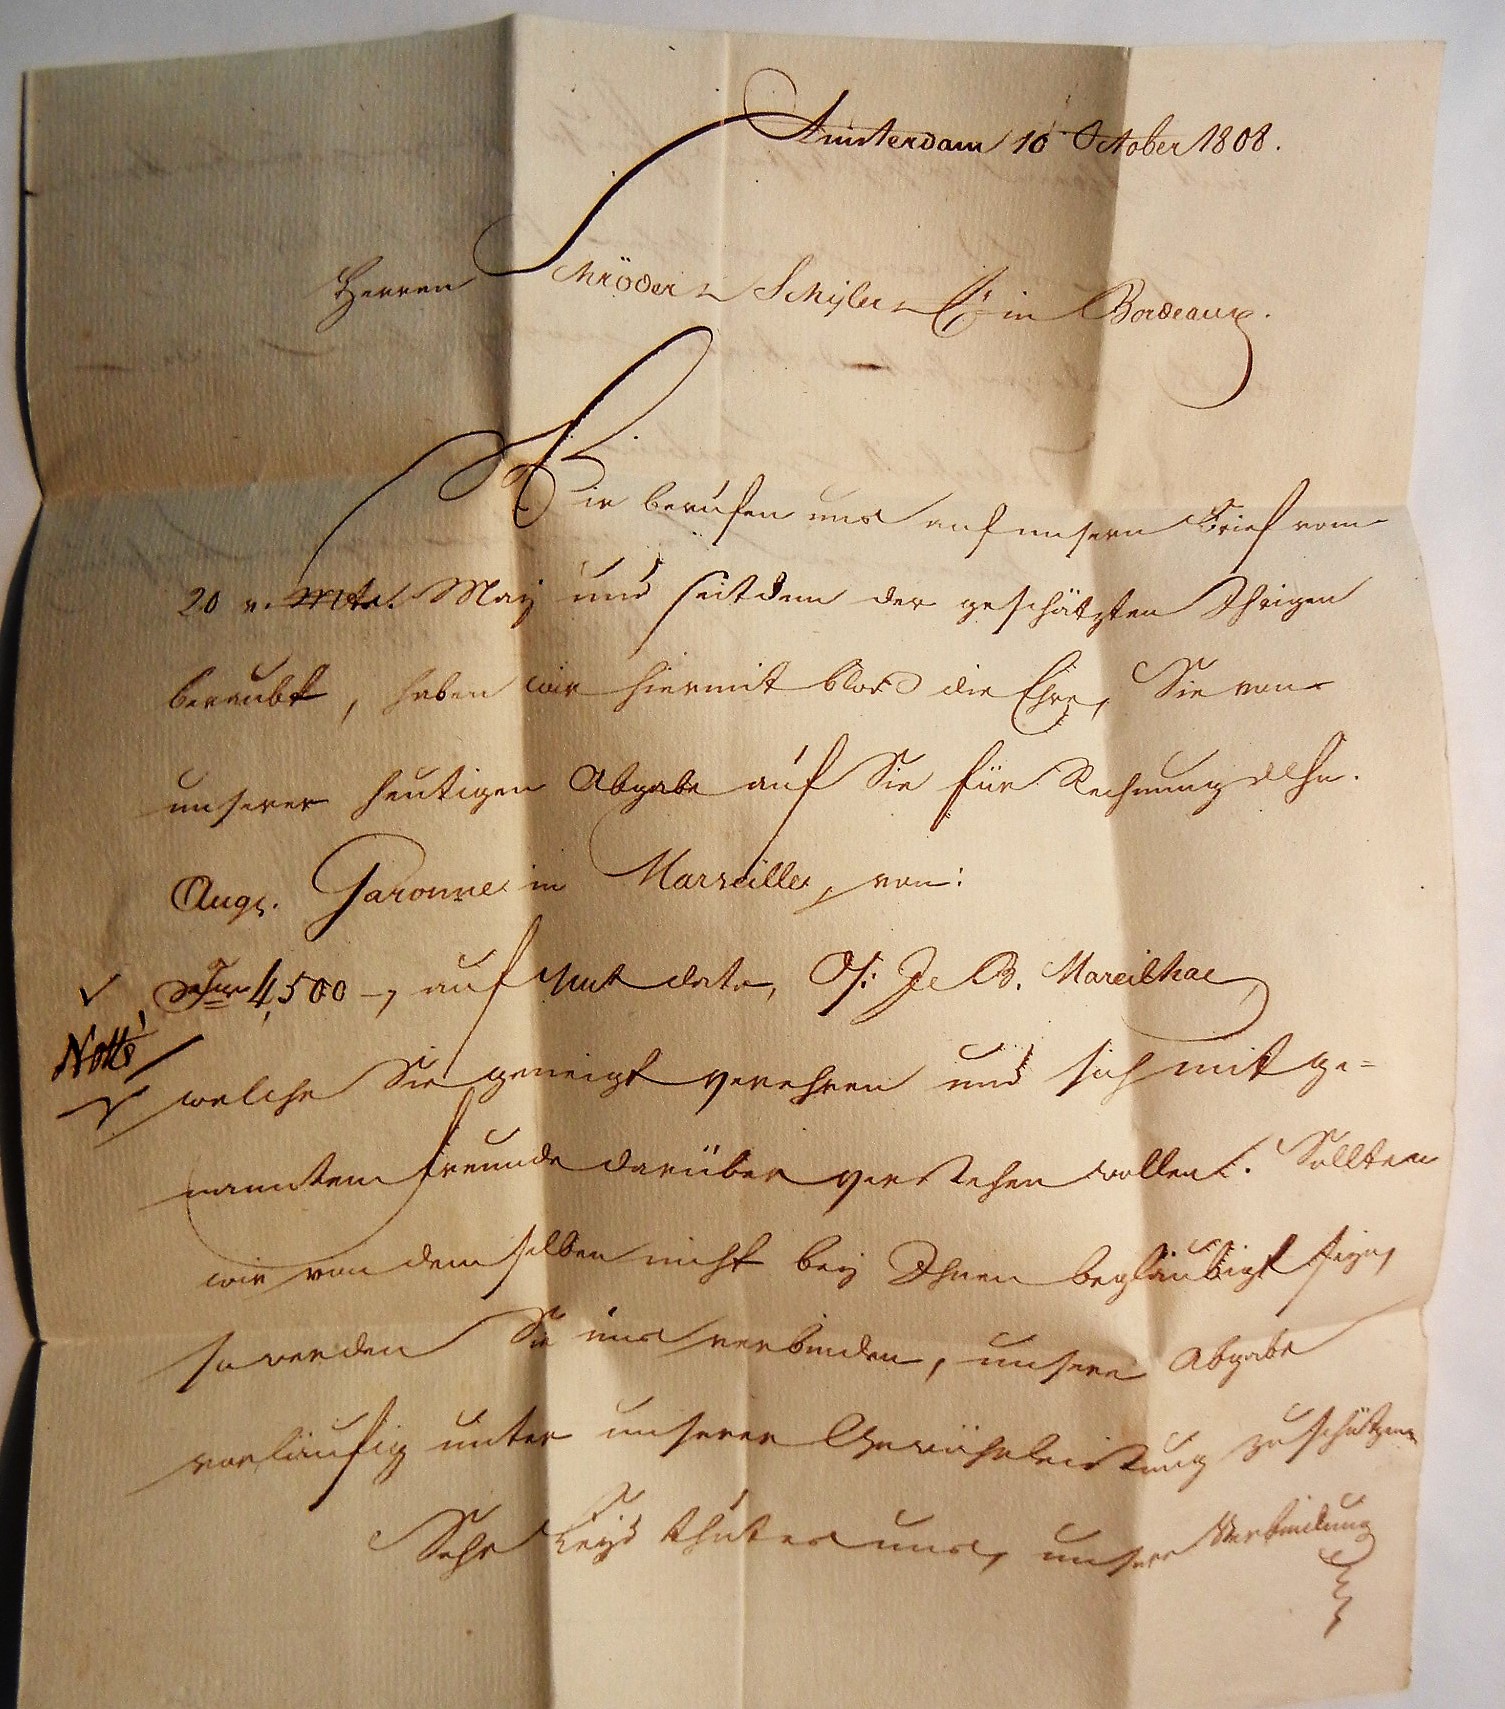 Amsterdam 10 October 1808.
Herren Schröder & Schÿler & Cº in Bordeaux.
Wir berufen uns auf unsern Brief vom
20 v. Mts. Maÿ und seitdem der geschätzten Ihrigen
beraubt, haben wir hiermit blos die Ehre, Sie von
unserer heutigen Abgabe auf Sie für Rechnung d Hn.
Augs. Garonne in Marseille, von:
4,500 –, auf dato, O/: Je B. Mareilhac
Notté
welche Sie geneigt verehren und sich mit ge=
nanntem Freunde darüber verstehen wollen. Sollten
wir von demselben nicht beÿ Ihnen beglaubigt seÿn,
so werden Sie uns verbinden, unsere Abgabe
vorläufig unter unserer Gewährleistung zu schützen
Sehr Leÿd thut es uns, unsere Verbindung